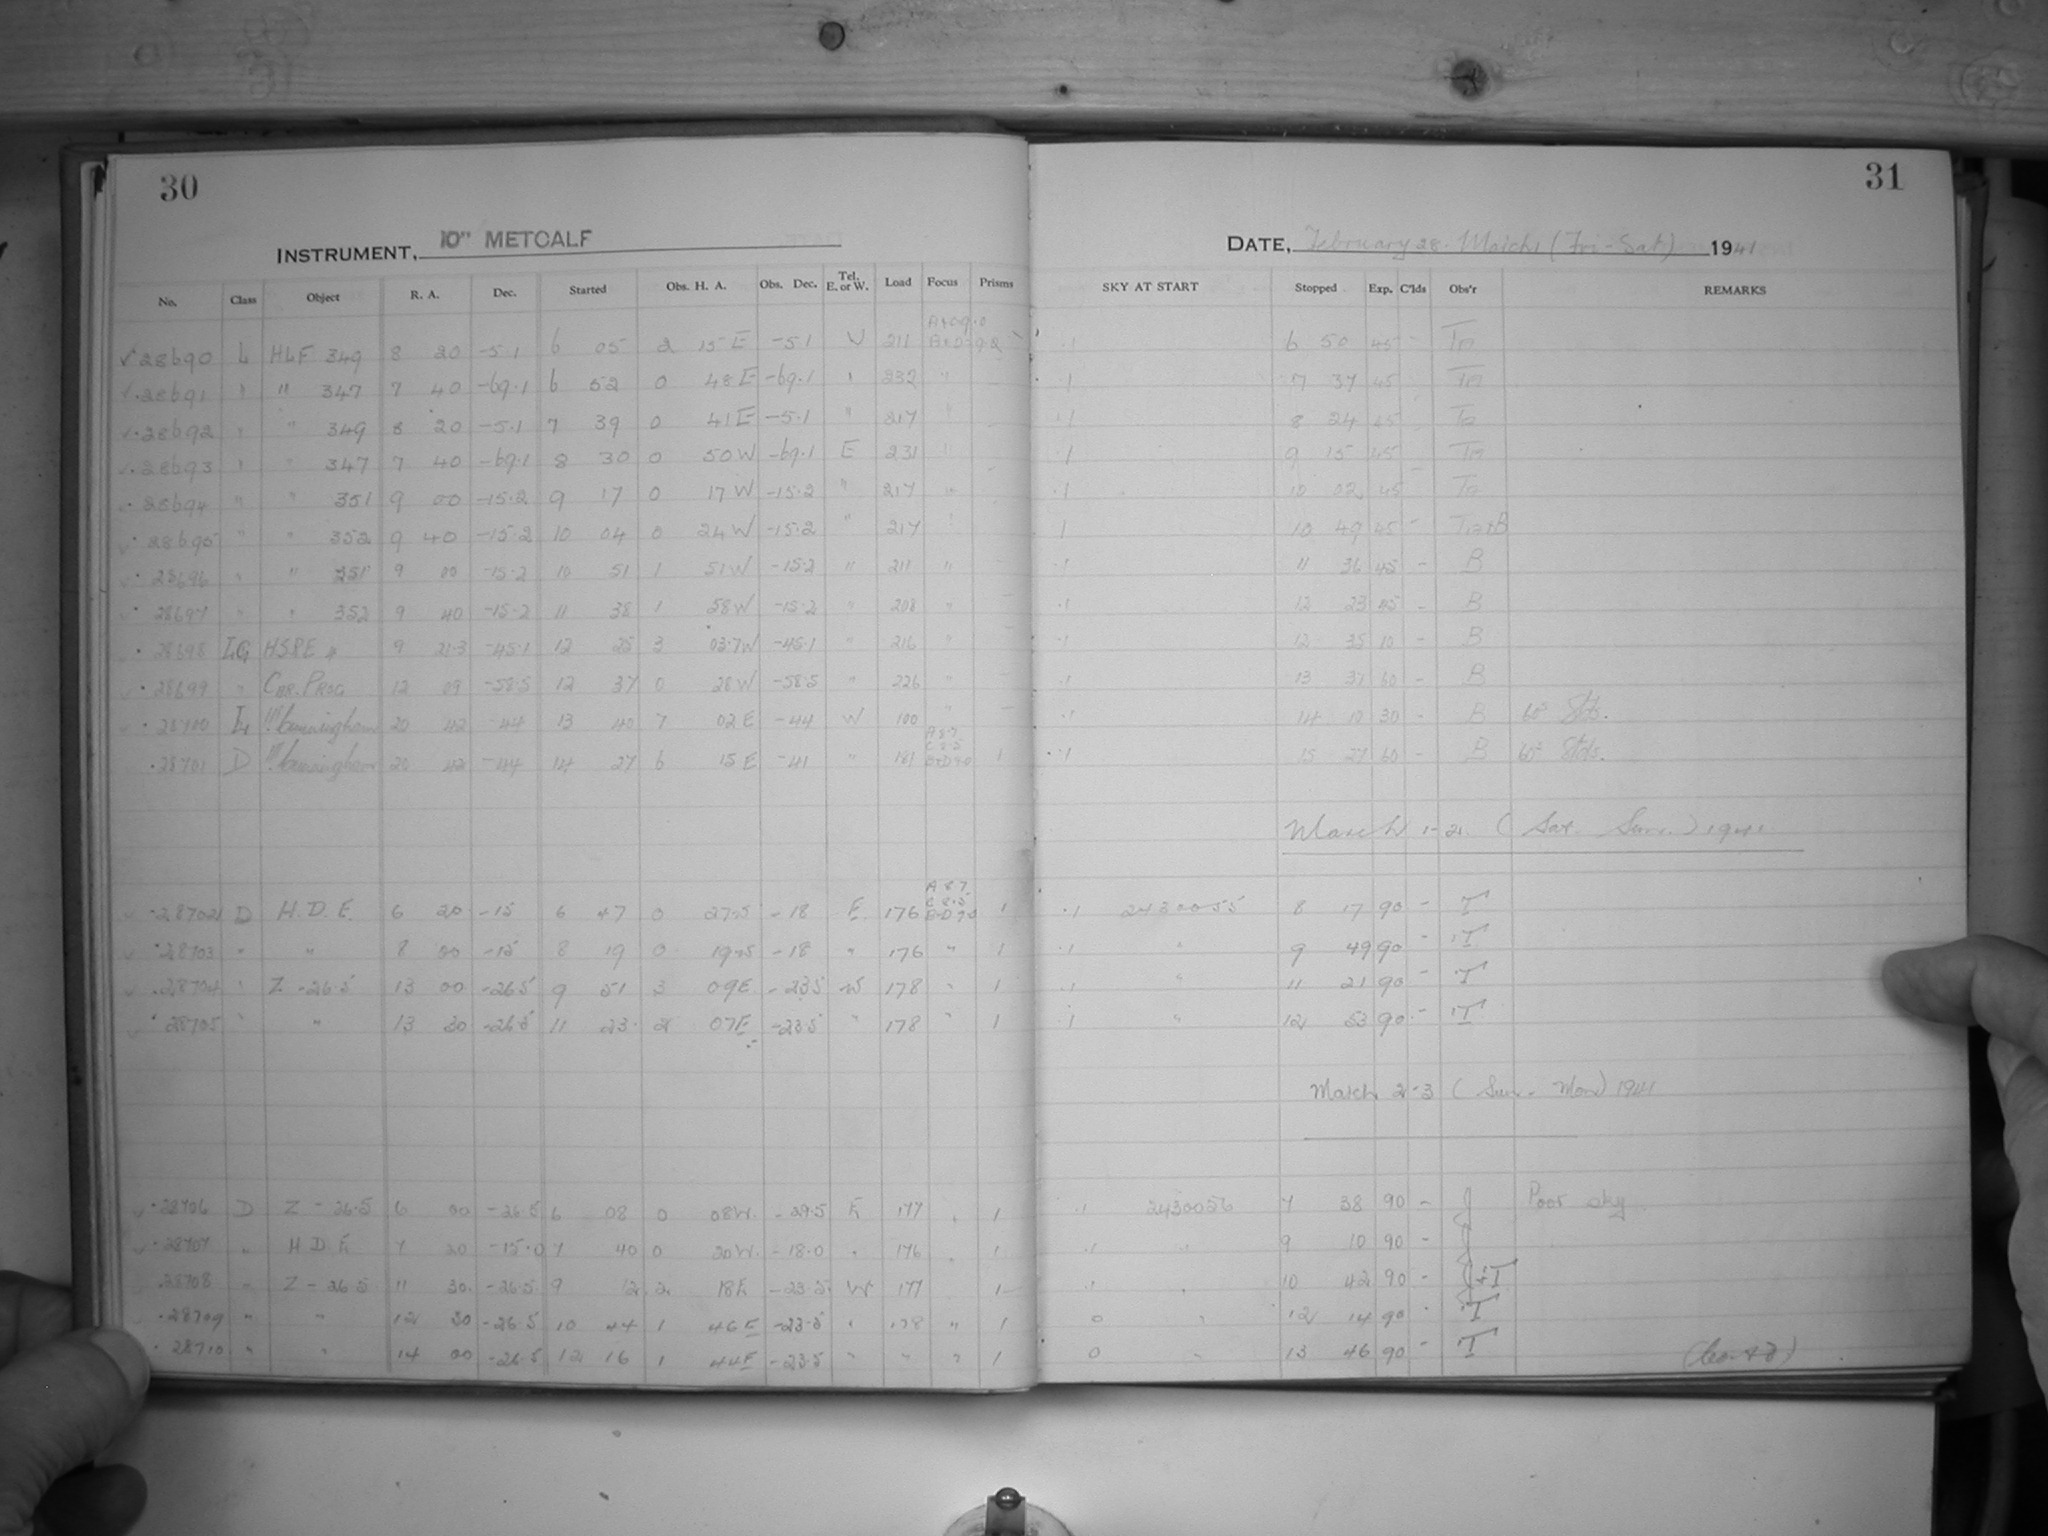 30
31
INSTRUMENT, 10" METCALF
DATE, February 28. March 1 (Fri-Sat) 1941
No. Class Object R. A. Dec. Started Obs. H. A. Obs. Dec. Tel. E. or W. Load Focus Prisms SKY AT START Stopped Exp. C'lds Obs'r REMARKS
28690 L HLF 349 8 20 -5.1 6 05 2 15 E -5.1 W 211 - .1 6 50 45 -
28691 " " 347 7 40 -69.1 6 52 0 48 E -69.1 " 232 " - .1 7 37 45
28692 " " 349 8 20 -5.1 7 39 0 41 E -5.1 " 217 " - .1 8 24 45
28693 " " 347 7 40 -69.1 8 30 0 50 W -69.1 E 231 " - .1 9 15 45
28694 " " 351 9 00 -15.2 9 17 0 17 W -15.2 " 217 " .1 10 02 45
28695 " " 352 9 40 -15.2 10 04 0 24 W -15.2 " 217 " .1 10 49 45 -
28696 " " 351 9 00 -15.2 10 51 1 51 W -15.2 " 211 " - .1 11 36 45 - B
28697 " " 352 9 40 -15.2 11 38 1 58 W -15.2 " 208 " - .1 12 23 45 - B
28698 LG HSPE 9 21.3 -45.1 12 25 3 03.7 W -45.1 " 216 " - .1 12 35 10 - B
28699 " 12 09 -58.5 12 37 0 28 W -58.5 " 226 " - .1 13 37 60 - B
28700 L !!! Cunningham 20 42 -44 13 40 7 02 E -44 W 100 " - .1 14 10 30 - B 60° Stds.
28701 D !!! Cunningham 20 42 -44 14 27 6 15 E -41 " 181 A 8.7 C 8.5 B+D 9.0 1 .1 15 27 60 - B 60° Stds.
March 1-2. (Sat. Sun.) 1941
28702 D H. D. E. 6 20 -15 6 47 0 27.5 -18 E 176 A 8.7 C 8.5 B+D 9.0 1 .1 2430055 8 17 90 - T
28703 " " 8 00 -15 8 19 0 19.5 -18 " 176 " 1 .1 " 9 49 90 - T
28704 " Z -26.5 13 00 -26.5 9 51 3 09 E -23.5 W 178 " 1 .1 " 11 21 90 - T
28705 " " 13 30 -26.5 11 23 2 07 E -23.5 " 178 " 1 .1 " 12 53 90 - T
March 2-3 (Sun. - Mon) 1941
28706 D Z -26.5 6 00 -26.5 6 08 0 08 W. -29.5 E 177 " 1 .1 2430056 7 38 90 - J Poor sky
28707 " H D E 7 20 -15.0 7 40 0 20 W. -18.0 " 176 " 1 .1 " 9 10 90 - J
28708 " Z -26.5 11 30. -26.5 9 12 2 18 E -23.5 W 177 1 .1 " 10 42 90 - J+T
28709 " " 12 30 -26.5 10 44 1 46 E -23.5 " 178 " 1 0 " 12 14 90 - T
28710 " " 14 00 -26.5 12 16 1 44 E -23.5 " " " 1 0 " 13 46 90 - T
(Cont'd)